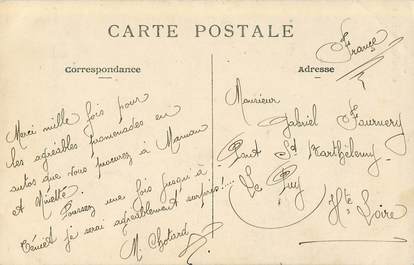 CARTE POSTALE
Correspondance
Adresse
France
Merci mille fois pour
les agréables promenades en
autos que vous procurez à Maman
et Ninette. Poussez une fois jusqu'à
je serai agréablement surpris!...
M. Chotard
Monsieur
Gabriel Fournery
Pont St Barthélemy
Le Puy
Hte Loire